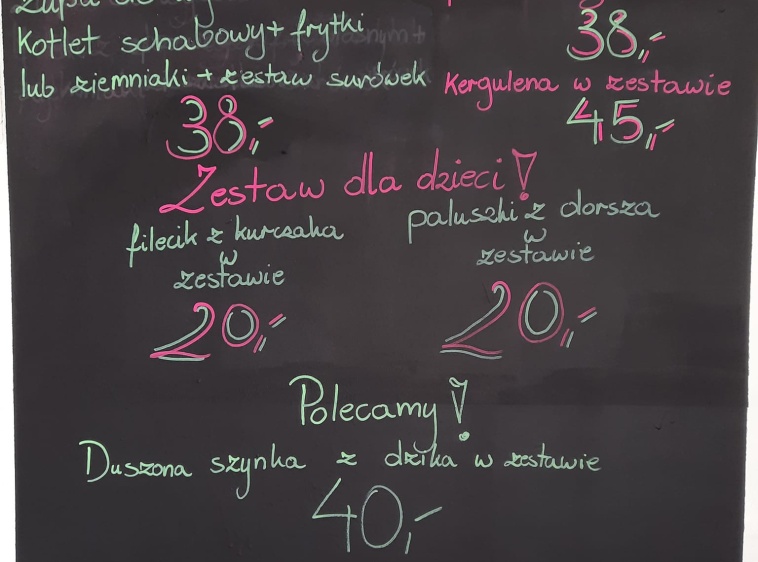 Zupa
Kotlet schabowy + frytki
lub ziemniaki + zestaw surówek
38,-
38,-
Kergulena w zestawie
45,-
Zestaw dla dzieci!
filecik z kurczaka
w
zestawie
20,-
paluszki z dorsza
w
zestawie
20,-
Polecamy!
Duszona szynka z dzika w zestawie
40,-